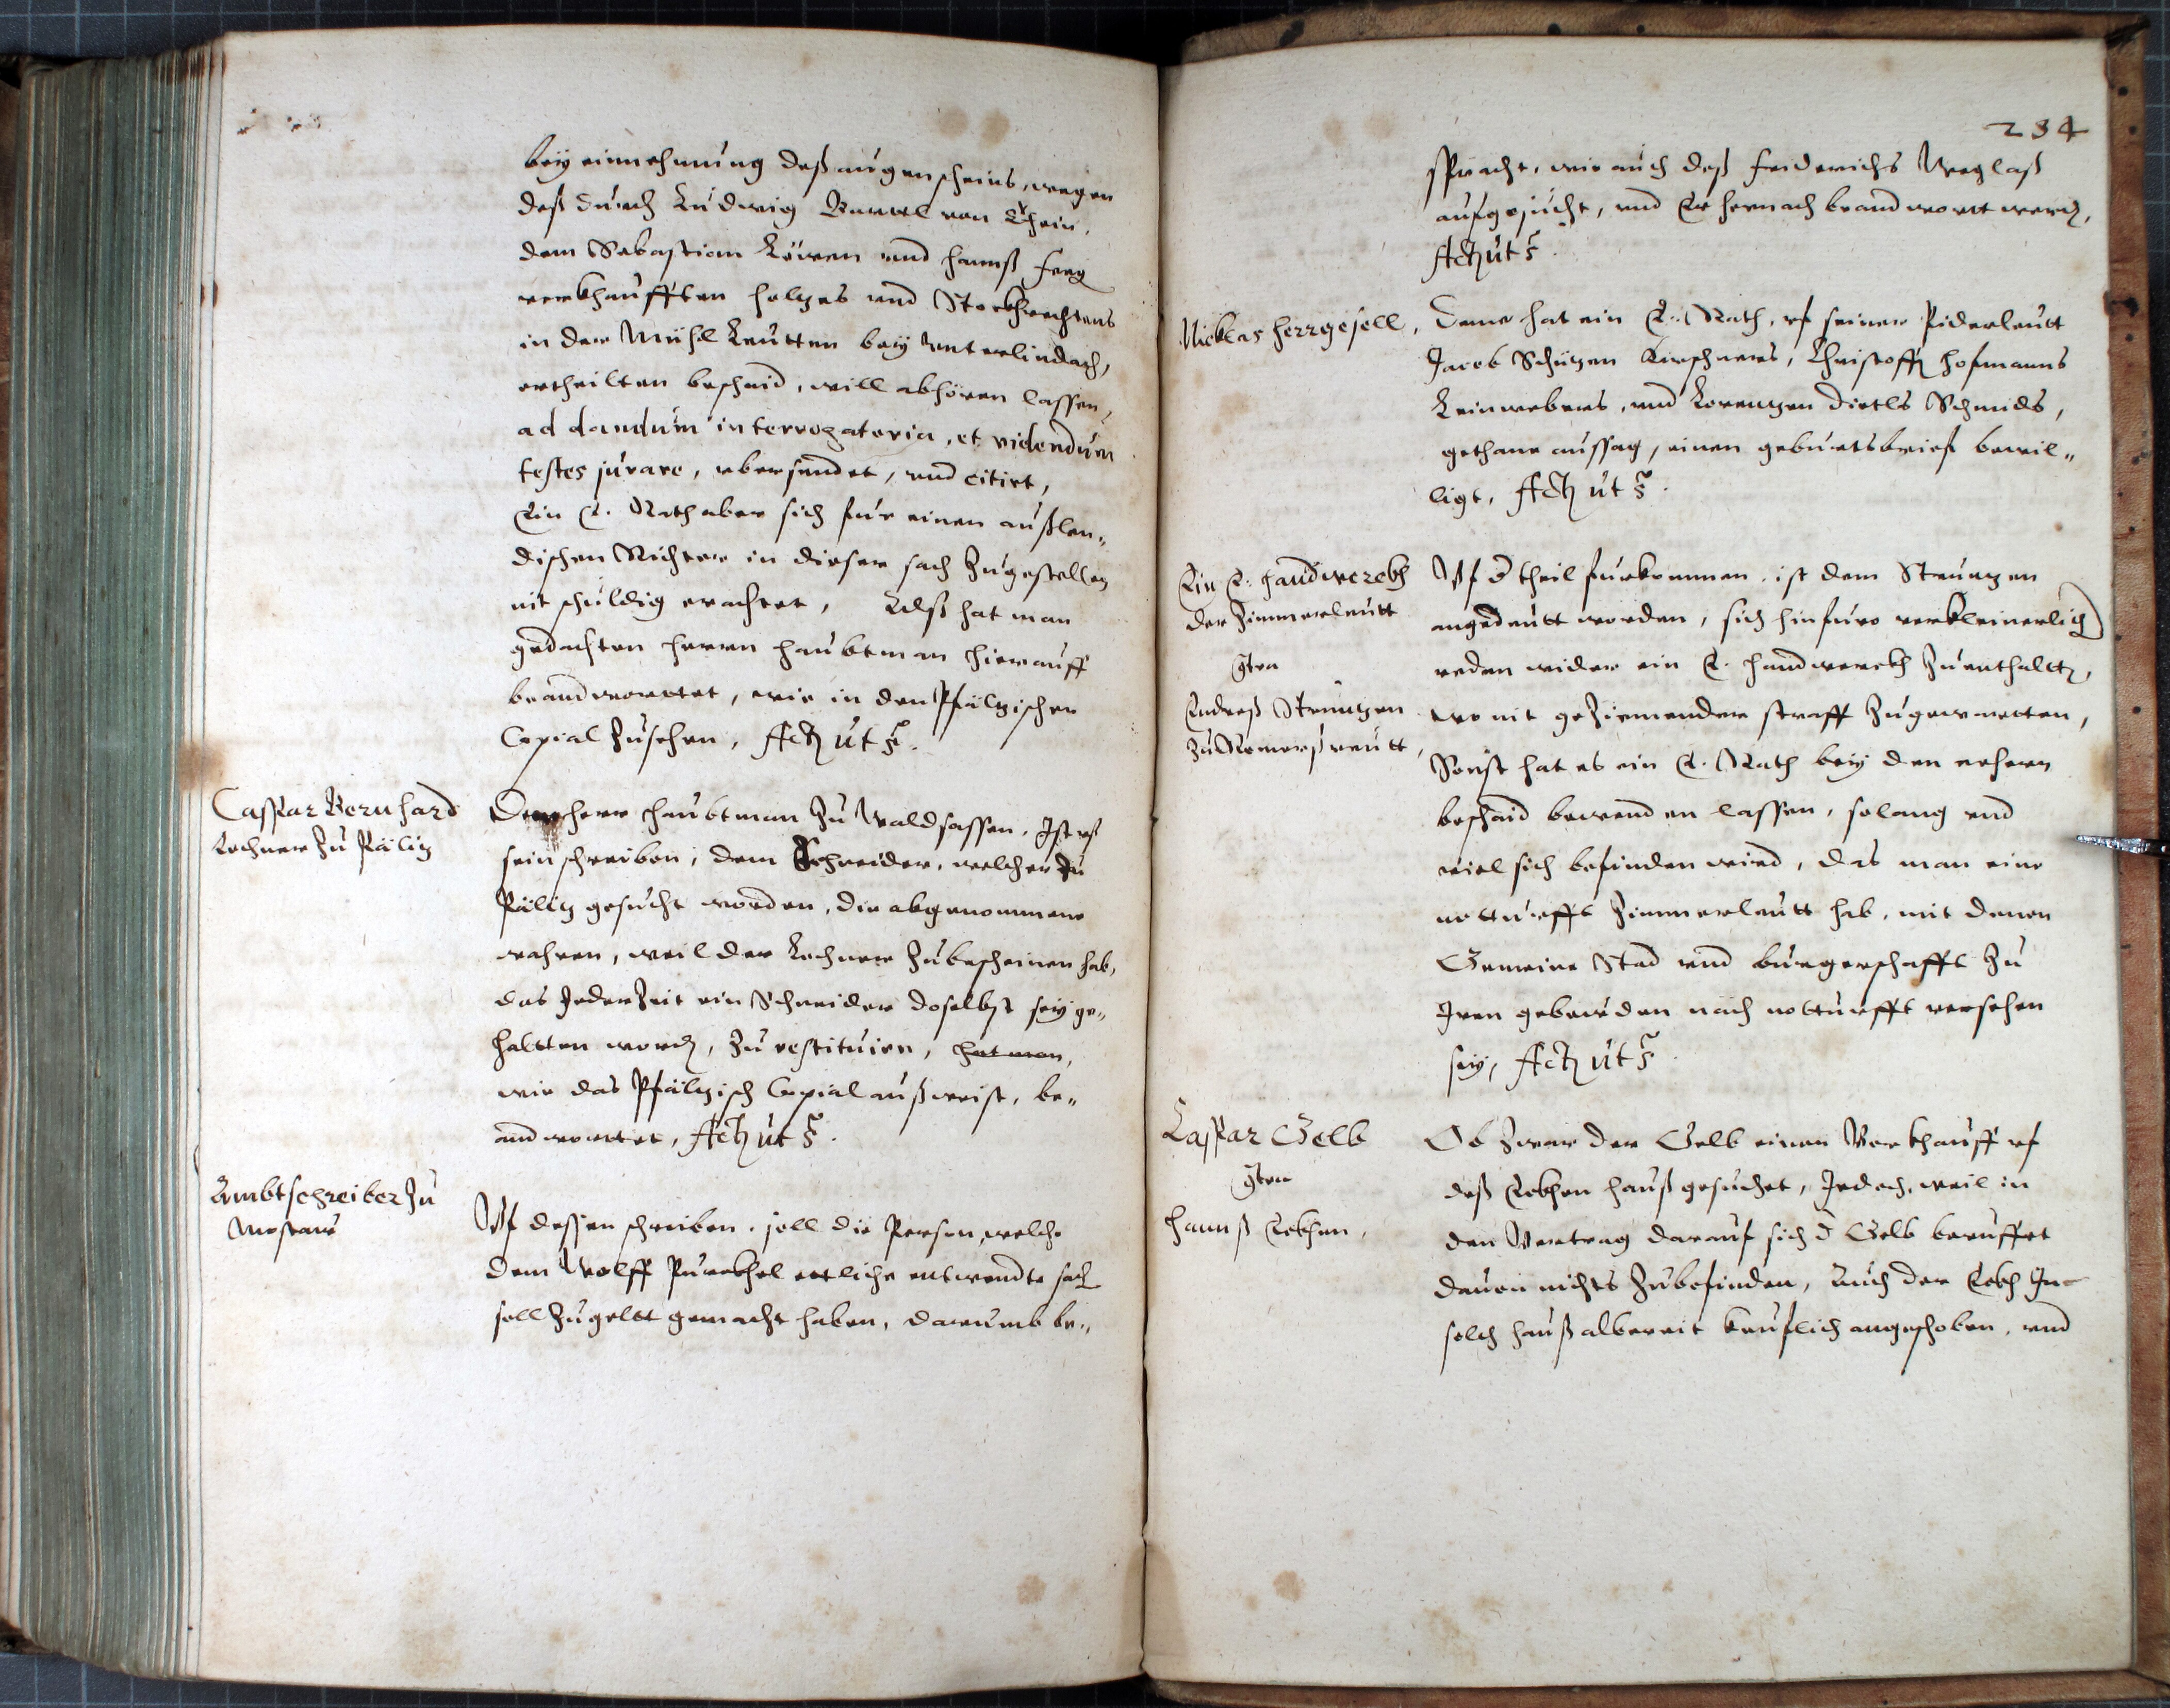 bey einnehmung deß augenscheins, wegen
deß durch Ludwig von
dem Sebastian und Hannß
verkhaufften holzes und
in der Mühl Leutten bey Unterlindach,
ertheilten bescheid, will abhören lassen,
ad dandum interrogatoria, et videndum
testes jurare, ubersendet, und citirt,
Ein E. Rath aber sich für einen außlen„
dischen Richter in dieser sach zugestellen
nit schuldig erachtet, Alß hat man
gedachten herrn haubtman hierauff
beandwortet, wie in den Pfälzischen
Copial zusehen, Act ut s.
Caspar Bernhard
Lochner zu Pälitz
herr haubtman zu Waldsassen, Ist uf
sein schreiben, dem Schneider, welcher zu
Pälitz gesucht worden, die abgenommene
wahren, weil der Lochner zubescheinen hab,
das Jederzeit ein Schneider doselbst sey ge„
haltten word, zu restituirn, hat man,
wie das Pfälzisch Copial außweist, be„
andwortet, Act ut s.
Ambtschreiber zu
Mostau
Uf dessen schreiben, soll die Person, welche
dem Wolff ettliche entwendte sach
soll zu geltt gemacht haben, darumb be„
234
spracht, wie auch deß Friderichs Verlaß
aufgesucht, und Er hernach beandwortt werd,
Act ut s.
Nicklas Herrgesell,
Deme hat ein E. Rath, uf seiner Piderleutt
Jacob Schützen Kirschners, Christoff Hofmanns
Leinwebers, und Lorentzen Dietls Schmids,
gethane aussag, einen geburtsbrief bewil„
ligt, Act ut s.
Ein E. Handwerckh
der Zimmerleutt
gen
Endreß Streuntzen
zu Romerßreutt,
Uf d theil furkommen, ist dem Streuntzen
angedeutt worden, sich hinfuro verkleinerlich
reden wider ein E. Handwerckh zu enthaltt,
wo nit geziemender straff zugewartten,
Sonst hat es ein E. Rath bey den
bescheid bewenden lassen, solang und
viel sich befinden wird, das man eine
notturfft Zimmerleutt hab, mit denen
Gemeine Stad und burgerschafft zu
Iren gebeuden nach notturfft versehen
sey, Act ut s.
Caspar Gelb
gen
Hannß
Ob zwar der Gelb einen Verkhauff uf
deß hauß gesuchet, Jedoch, weil in
den Vertrag darauf sich d Gelb beruffet
davon nichts zubefinden, Auch der In
solch hauß albereit keuflich angeschoben, und